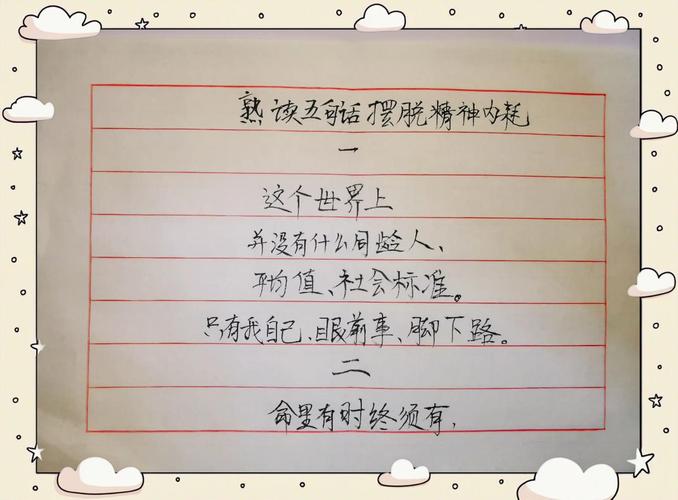 熟读五句话摆脱精神内耗
一
这个世界上
并没有什么同龄人、
平均值、社会标准。
只有我自己、眼前事、脚下路。
二
命里有时终须有,